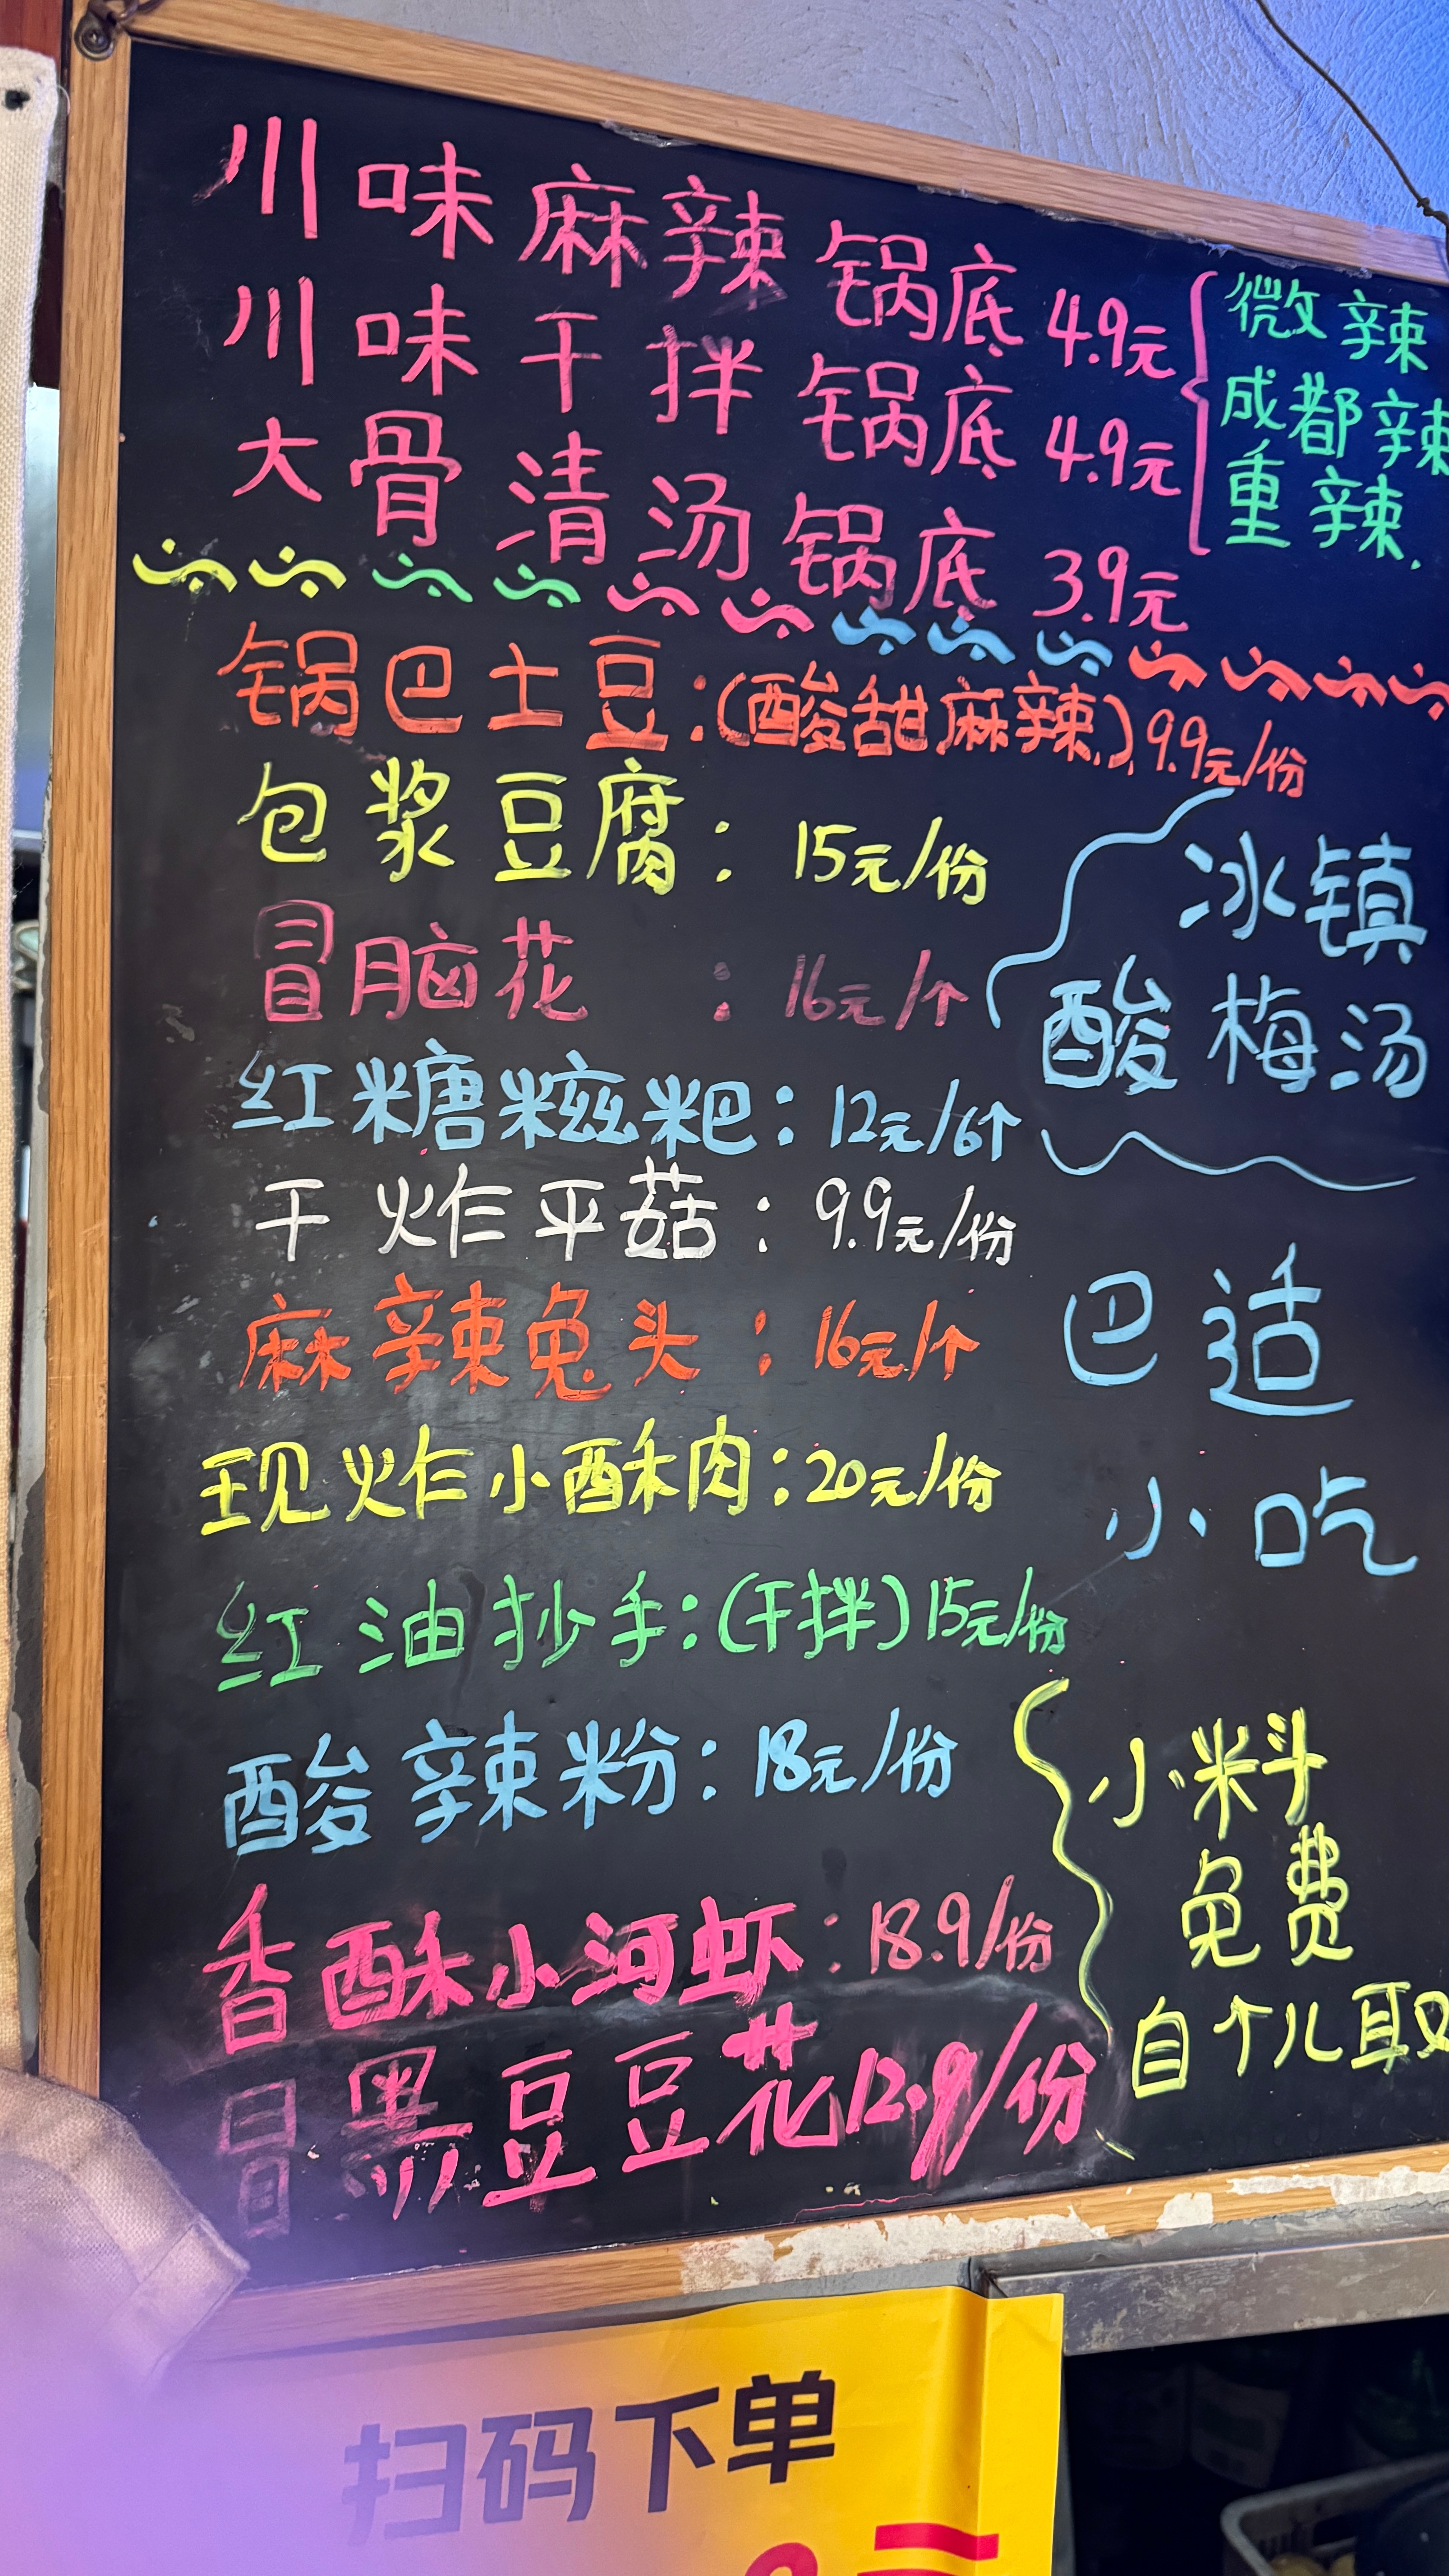 川味麻辣锅底 4.9元
川味干拌锅底 4.9元
大骨清汤锅底 3.9元
微辣
成都辣
重辣.
锅巴土豆:(酸甜麻辣)9.9元/份
包浆豆腐: 15元/份
冒脑花 : 16元/个
冰镇
酸梅汤
红糖糍粑: 12元/6个
干炸平菇: 9.9元/份
麻辣兔头: 16元/个
巴适
小吃
现炸小酥肉: 20元/份
红油抄手:(干拌)15元/份
酸辣粉: 18元/份
小料
免费
自个儿取
香酥小河虾: 18.9/份
冒黑豆豆花12.9/份
扫码下单